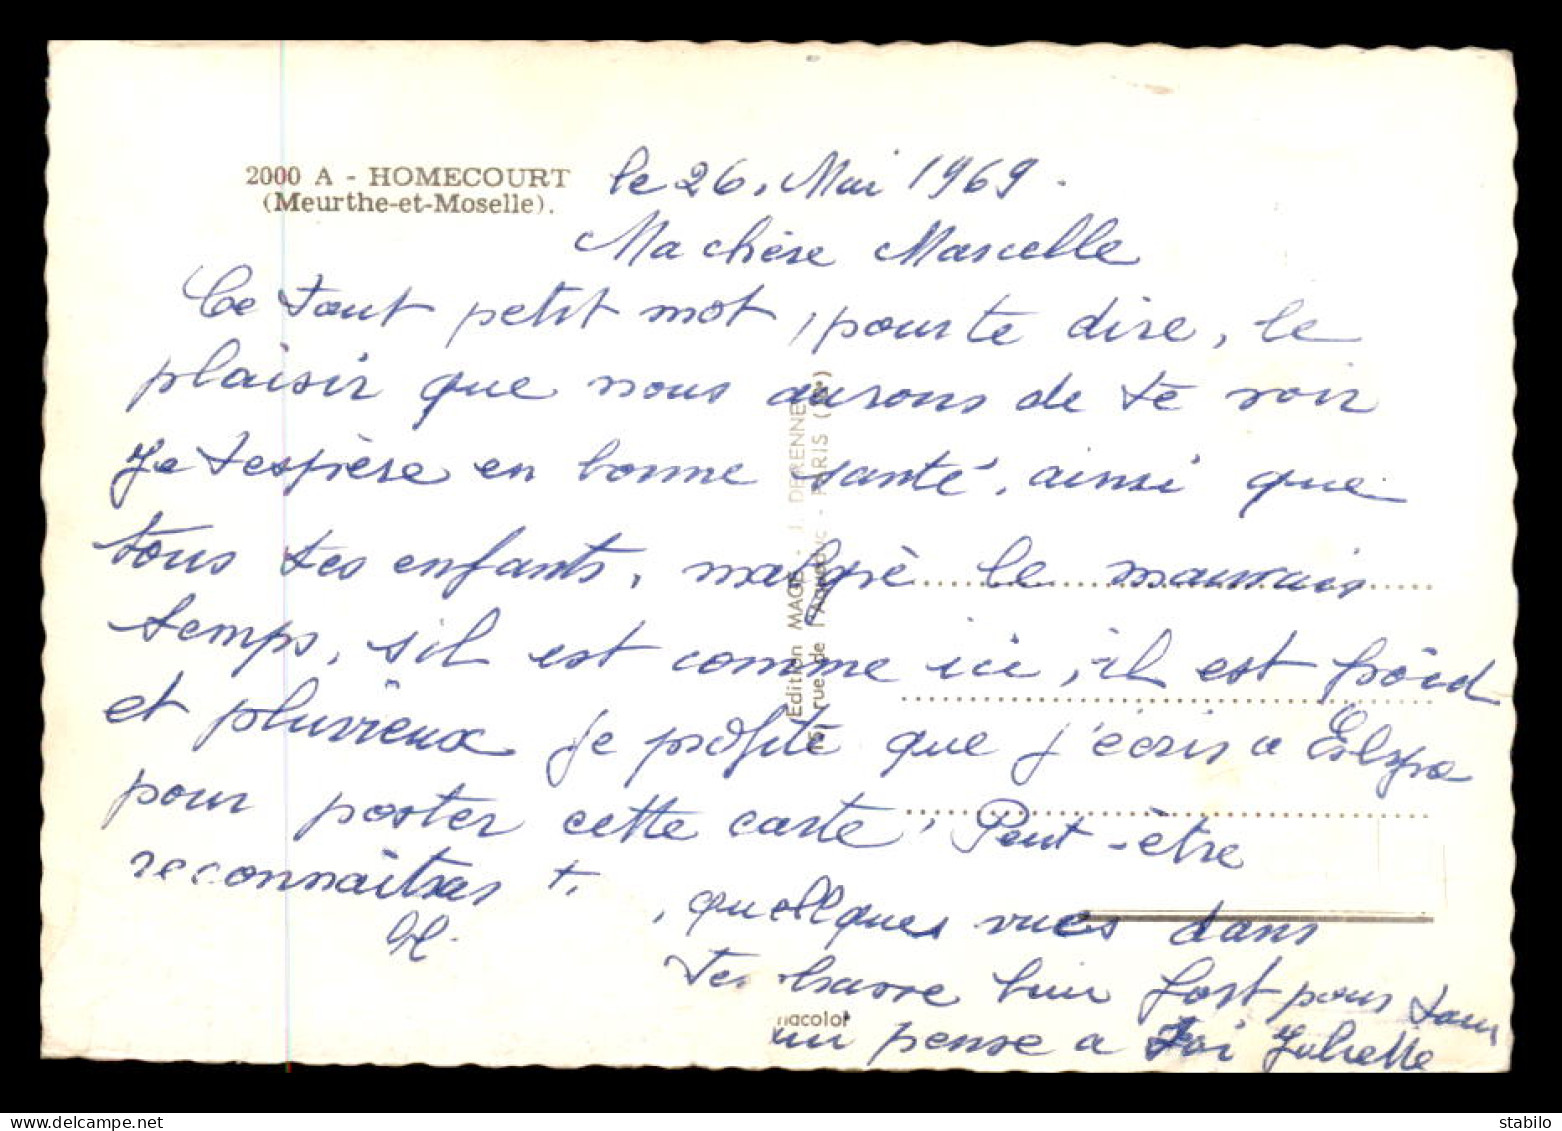 2000 A - HOMECOURT
(Meurthe-et-Moselle).
le 26. Mai 1969.
Ma chère Marcelle
Ce tout petit mot, pour te dire, le
plaisir que nous aurons de te voir
Je t'espère en bonne santé, ainsi que
tous tes enfants, malgrè le mauvais
temps, s'il est comme ici, il est froid
et pluvieux je profite que j'écris a
pour poster cette carte, Peut-être
reconnaîtras t.
, quellques vues dans
bien fort pour tous
pense a Toi Juliette
Edition MAGE - J. DERENNE
15, rue de l'Aqueduc - PARIS
nacolor
stabilo